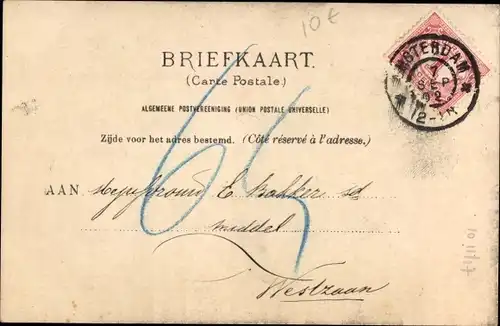 10 €
BRIEFKAART.
(Carte Postale.)
ALGEMEENE POSTVEREENIGING (UNION POSTALE UNIVERSELLE)
Zijde voor het adres bestemd. (Côté réservé à l'adresse.)
AMSTERDAM
SEP
02
65
AAN Mejufvrouw E Bakker
middel
Westzaan